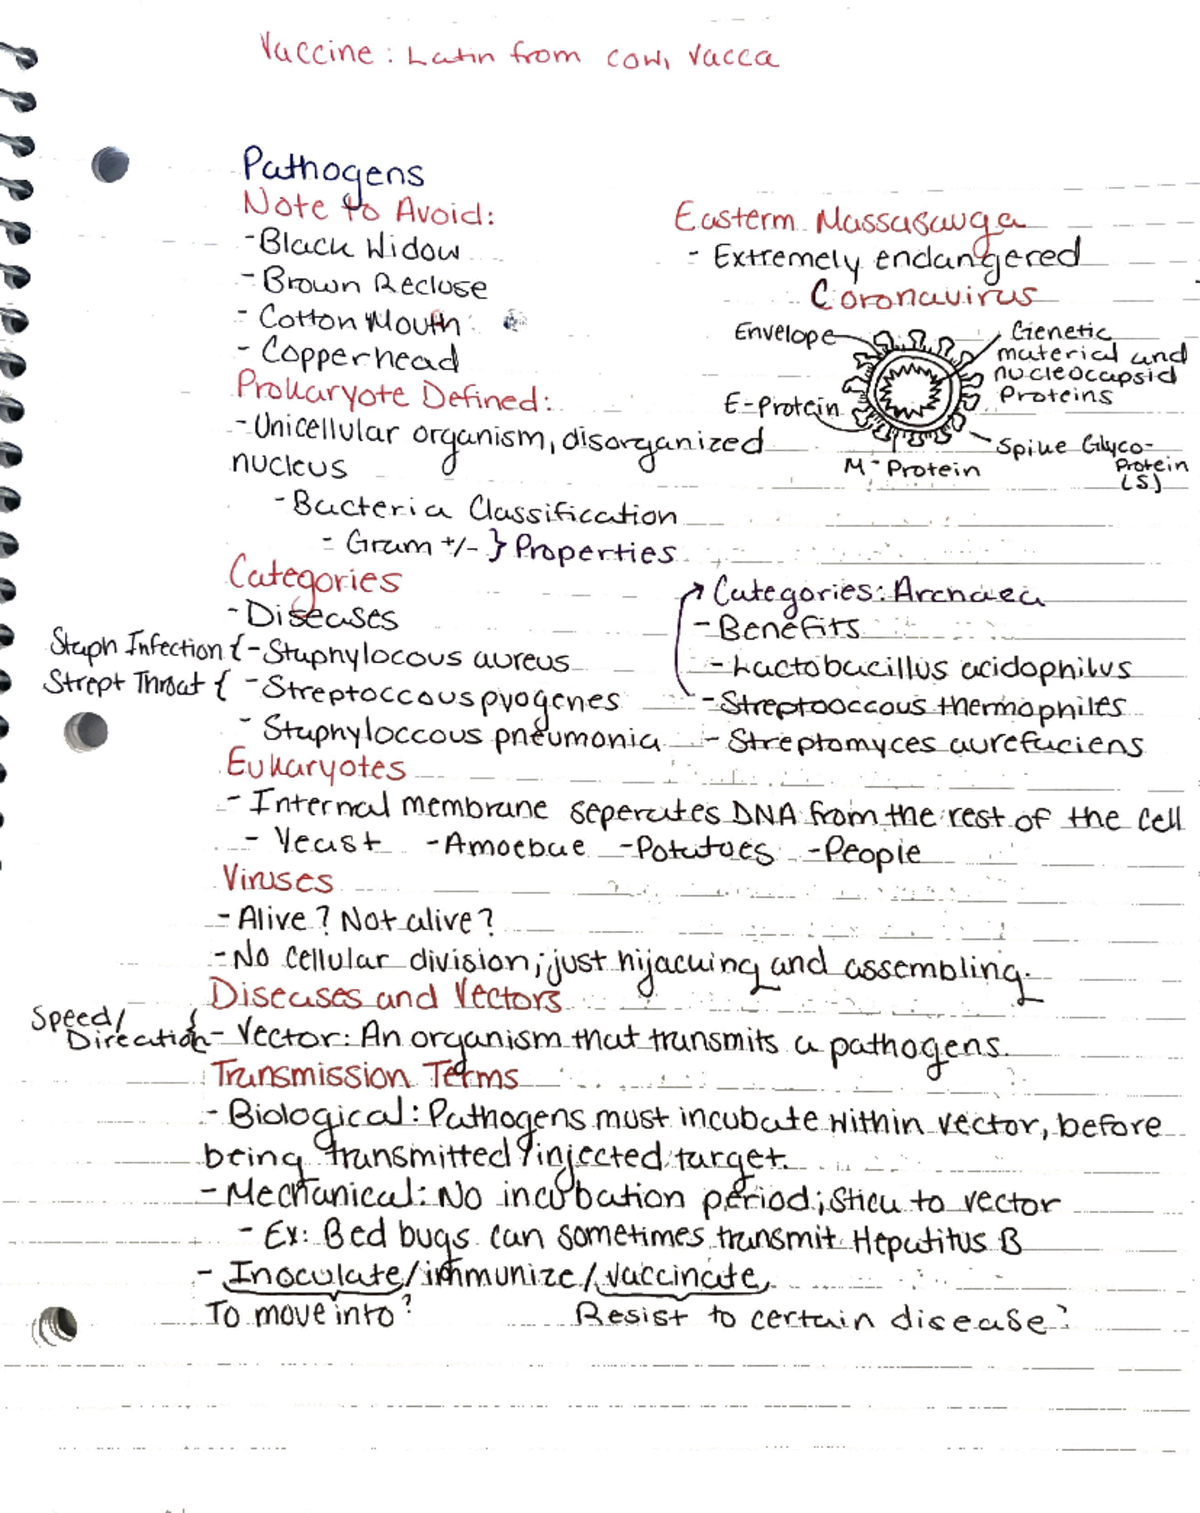 Vaccine: Latin from cow, vacca
Pathogens
Note to Avoid:
- Black Widow
- Brown Recluse
- Cotton Mouth
- Copperhead
Prokaryote Defined:
- Unicellular organism, disorganized
nucleus
- Bacteria Classification
- Gram +/- } Properties
Easterm Massasauga
- Extremely endangered
Coronavirus
Envelope
Genetic
material and
nucleocapsid
Proteins
E-Protein
M-Protein
Spike Glyco-
Protein
(S)
Categories
- Diseases
Staph Infection { - Staphylocous aureus
Strept Throat { - Streptoccous pyogenes
- Staphyloccous pneumonia
Categories: Archaea
- Benefits
- Lactobacillus acidophilus
- Streptooccous thermophiles
- Streptomyces aurefaciens
Eukaryotes
- Internal membrane seperates DNA from the rest of the cell
- Yeast - Amoebae - Potatoes - People
Viruses
- Alive? Not alive?
- No cellular division; just hijacking and assembling.
Diseases and Vectors
Speed/
Direction { - Vector: An organism that transmits a pathogens.
Transmission Terms
- Biological: Pathogens must incubate within vector, before
being transmitted/injected target.
- Mechanical: No incubation period; stick to vector
- Ex: Bed bugs can sometimes transmit Hepatitus B
- Inoculate/immunize/vaccinate,
To move into? Resist to certain disease?